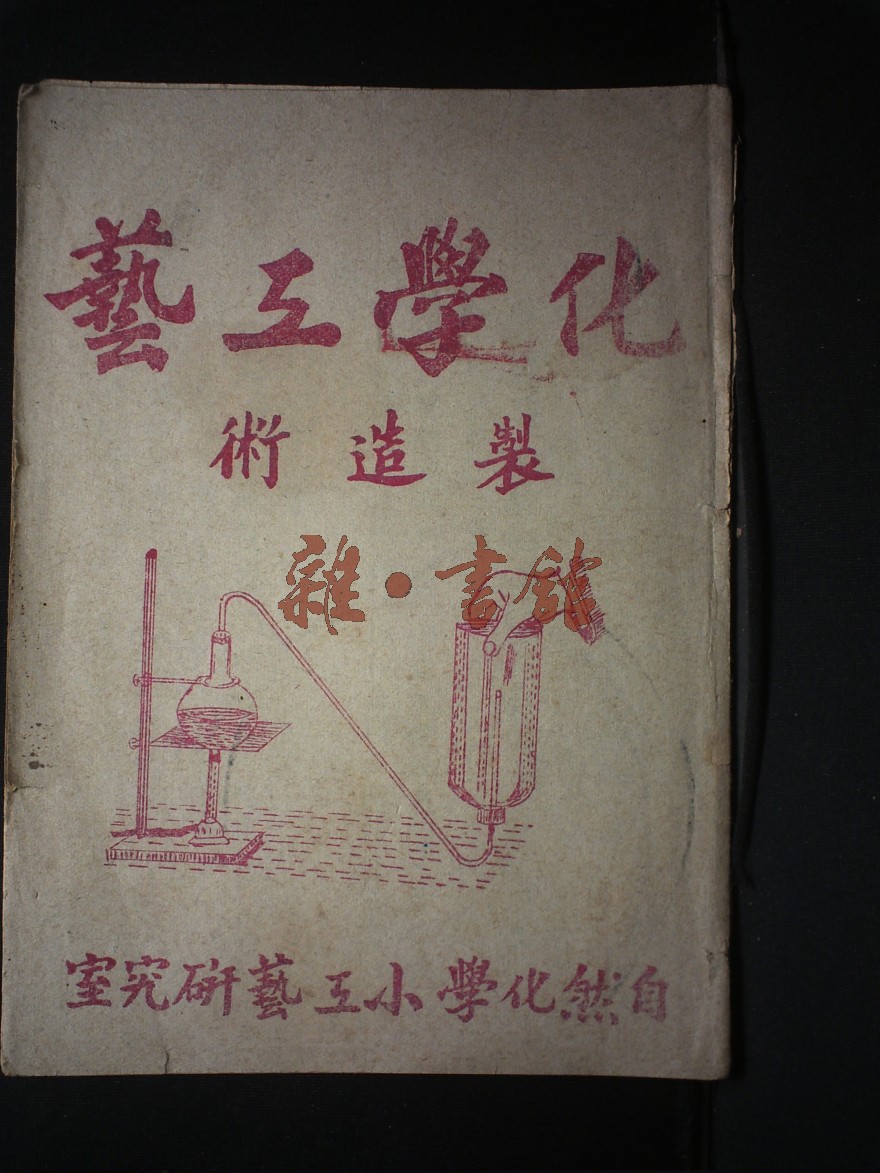 化學工藝
製造術
雜·書館
自然化學小工藝研究室